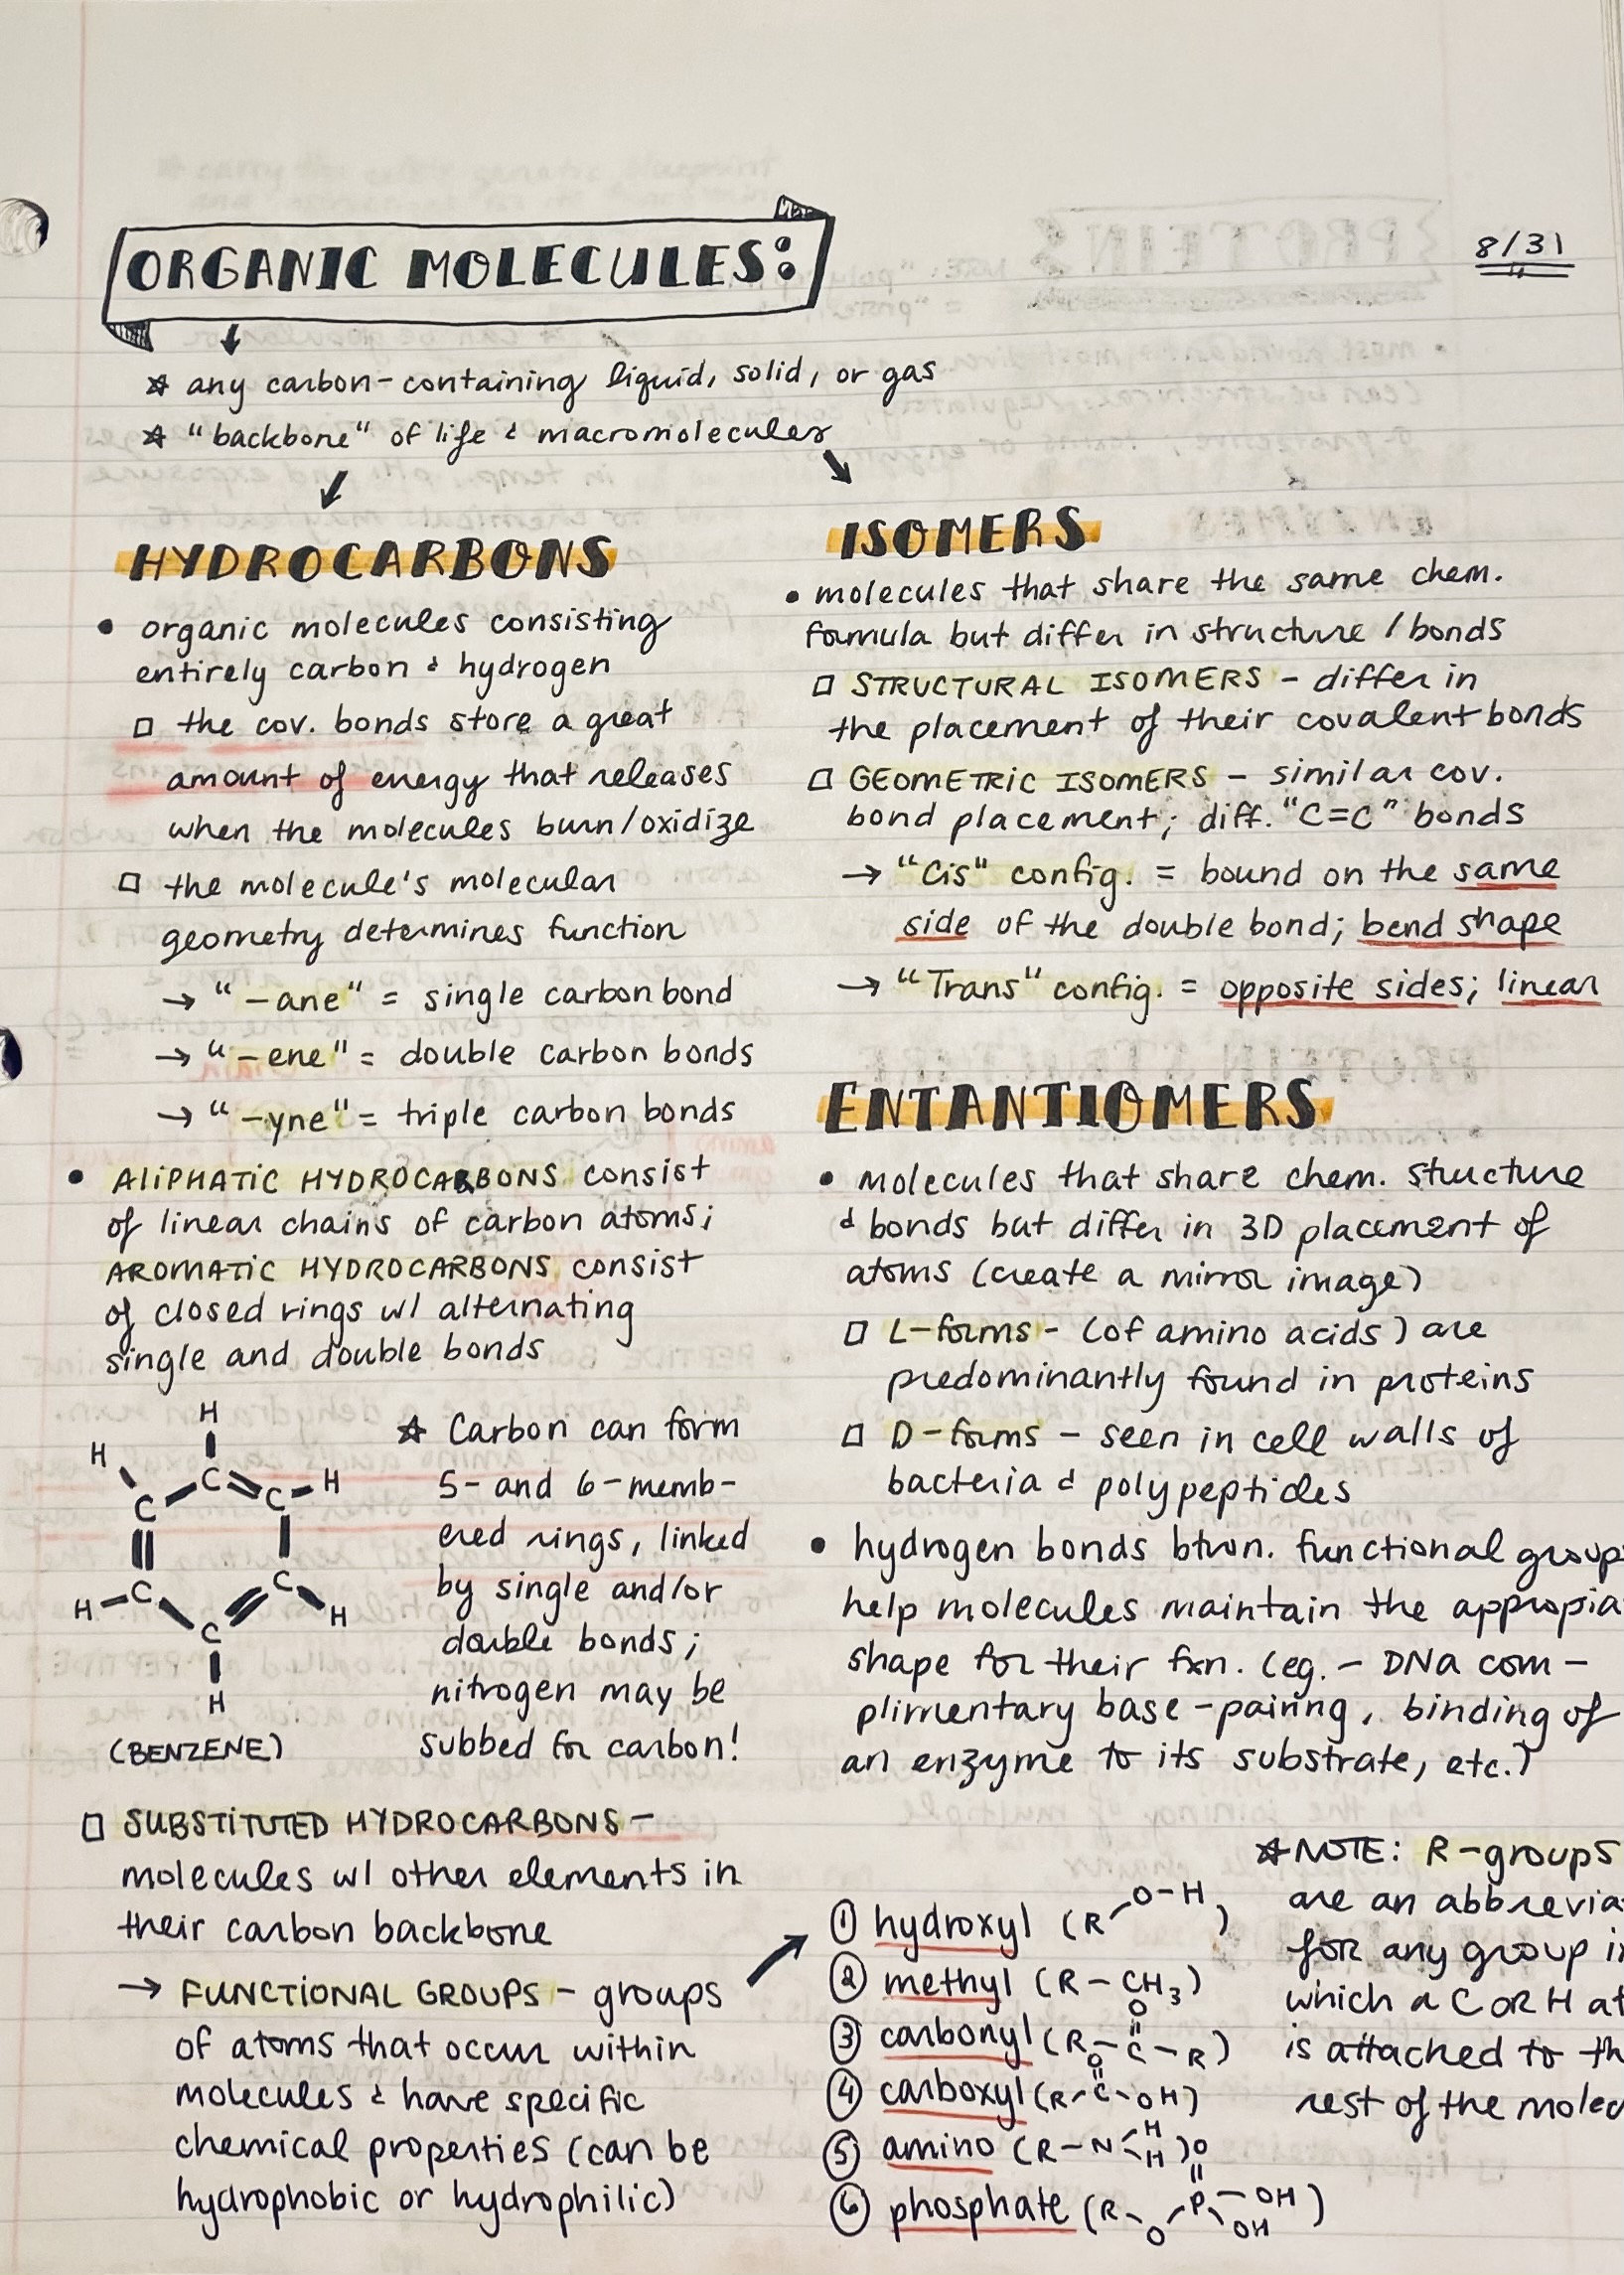 ORGANIC MOLECULES:
8/31
☆ any carbon-containing liquid, solid, or gas
☆ "backbone" of life & macromolecules
HYDROCARBONS
• organic molecules consisting
entirely carbon & hydrogen
□ the cov. bonds store a great
amount of energy that releases
when the molecules burn/oxidize
□ the molecule's molecular
geometry determines function
→ "-ane" = single carbon bond
→ "-ene" = double carbon bonds
→ "-yne" = triple carbon bonds
• ALIPHATIC HYDROCARBONS consist
of linear chains of carbon atoms;
AROMATIC HYDROCARBONS consist
of closed rings w/ alternating
single and double bonds
H
H
C
C
H
C
C
H
C
H
C
H
(BENZENE)
☆ Carbon can form
5- and 6-memb-
ered rings, linked
by single and/or
double bonds;
nitrogen may be
subbed for carbon!
□ SUBSTITUTED HYDROCARBONS -
molecules w/ other elements in
their carbon backbone
→ FUNCTIONAL GROUPS - groups
of atoms that occur within
molecules & have specific
chemical properties (can be
hydrophobic or hydrophilic)
ISOMERS
• molecules that share the same chem.
formula but differ in structure / bonds
□ STRUCTURAL ISOMERS - differ in
the placement of their covalent bonds
□ GEOMETRIC ISOMERS - similar cov.
bond placement; diff. "C=C" bonds
→ "Cis" config. = bound on the same
side of the double bond; bend shape
→ "Trans" config. = opposite sides; linear
ENTANTIOMERS
• molecules that share chem. structure
& bonds but differ in 3D placement of
atoms (create a mirror image)
□ L-forms - (of amino acids) are
predominantly found in proteins
□ D-forms - seen in cell walls of
bacteria & polypeptides
• hydrogen bonds btwn. functional group
help molecules maintain the appropia
shape for their fxn. (eg. - DNA com-
plimentary base-pairing, binding of
an enzyme to its substrate, etc.)
① hydroxyl (R O-H)
② methyl (R-CH3)
③ carbonyl (R-C-R) O
④ carboxyl (R-C-OH) O
⑤ amino (R-N H H)
⑥ phosphate (R-O-P-OH OH) O
☆NOTE: R-groups
are an abbrevia
for any group in
which a C OR H at
is attached to th
rest of the molec